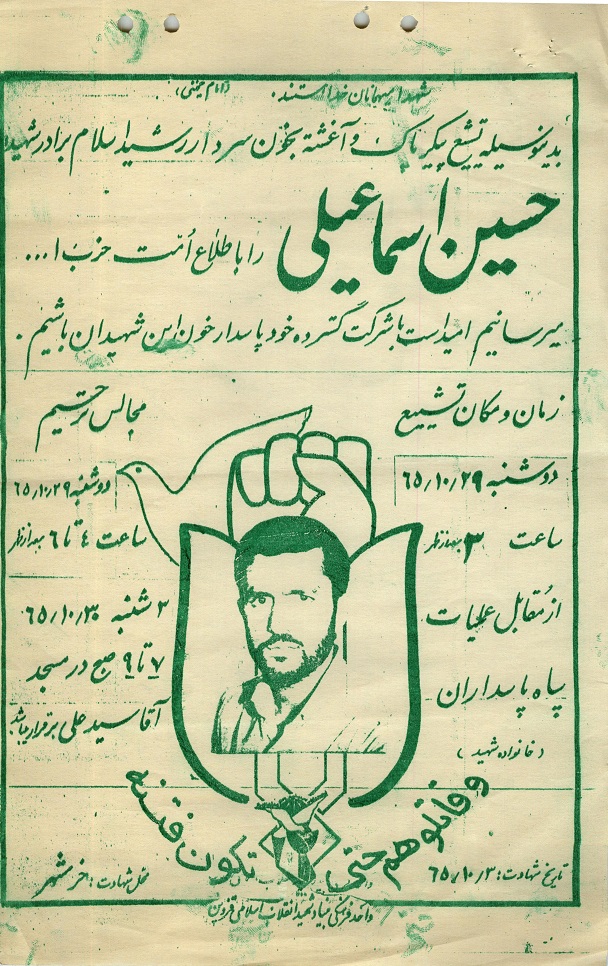 شهدا میهمانان خدا هستند. (امام خمینی)
بدینوسیله تشیع پیکر پاک و آغشته بخون سردار رشید اسلام برادر شهید
حسین اسماعیلی را باطلاع اُمّت حزب ا...
میرسانیم امید است با شرکت گسترده خود پاسدار خون این شهیدان باشیم.
زمان و مکان تشییع
دوشنبه ۶۵/۱۰/۲۹
ساعت ۳ بعدازظهر
از مُقابل عملیات
سپاه پاسداران
(خانواده شهید)
مجالس ترحیم
دوشنبه ۶۵/۱۰/۲۹
ساعت ٤ تا ۶ بعدازظهر
۳ شنبه ۶۵/۱۰/۳۰
۷ تا ۹ صبح در مسجد
آقا سید علی برقرار میباشد
و قاتلوهم حتی تکون فتنه
تاریخ شهادت: ۶۵/۱۰/۳
محل شهادت: خرمشهر
واحد فرهنگی بنیاد شهید انقلاب اسلامی قزوین